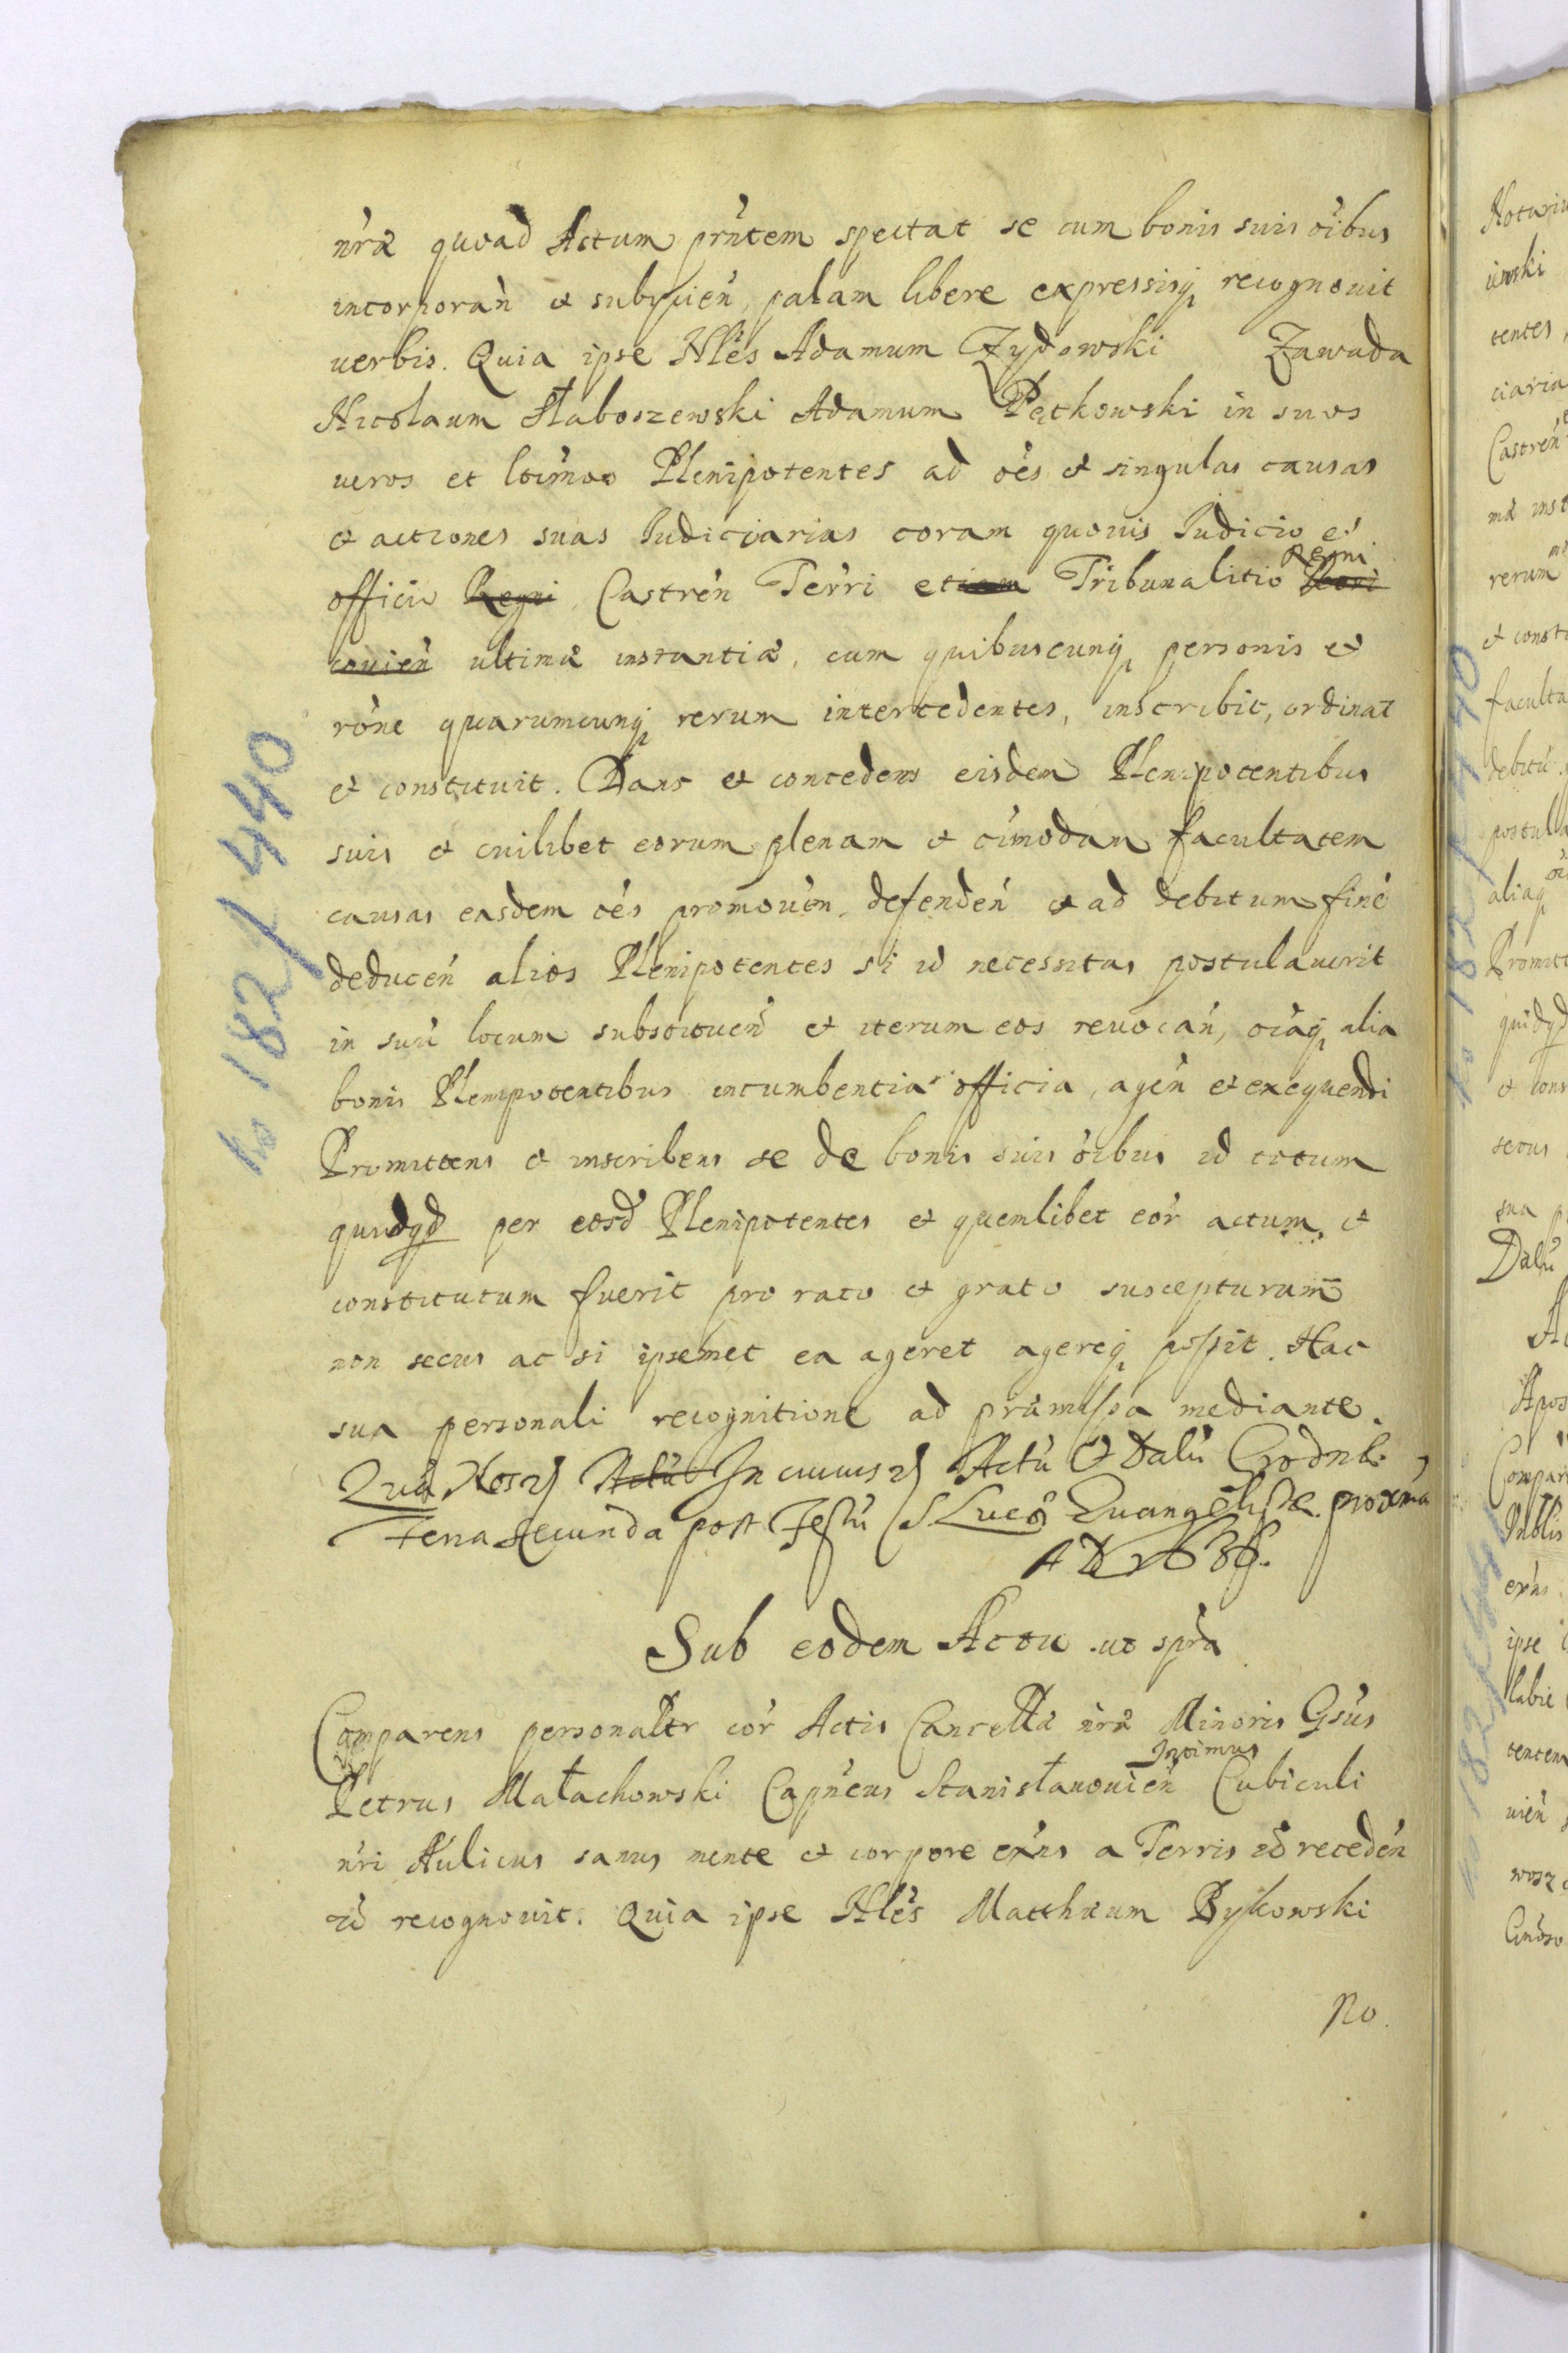 nr̃æ quoad Actum pr̃ntem spectat se cum bonis suis oĩbus
incorporañ et subijcieñ, palam libere expressisq̨ recognouit
verbis. Quia ipse Nlẽs Adamum Zydowski Zawada
Nicolaum Słaboszewski Adamum Pętkowski in suos
veros et ltĩmos Plenipotentes ad oẽs et singulas causas
et actiones suas Iudiciarias coram quouis Iudicio et
officio Regni Castreñ Terri etiam Tribunalitio Regni
couień ultimæ instantiæ, cum quibuscunq̨ personis et
rõne quarumcunq̨ rerum intercedentes, inscribit, ordinat
et constituit. Dans et concedens eisdem Plenipotentibus
suis et cuilibet eorum plenam et oĩmodam facultatem
causas easdem oẽs promoueñ, defendeñ et ad debitum finẽ
deduceñ alios Plenipotentes si id necessitas postulauerit
in suũ locum substitueñ et iterum eos reuocañ, oĩaq̨ alia
bonis Plenipotentibus incumbentia officia, ageñ et exequendi
Promittens et inscribens se de bonis suis oĩbus id totum
quidqd per eosd Plenipotentes et quemlibet eor̃ actum et
constitutum fuerit pro rato et grato suscepturum
non secus ac si ipsemet ea ageret agereq̨ possit. Hac
sua personali recognitione ad præmissa mediante.
In cuius Actũ et Datũ Grodnæ
Feria secunda post Festũ S Lucæ Euangelistæ proxima
Sub eodem Actu ut spra
Comparens personaltr cor̃ Actis Cancellæ nr̃æ Minoris Gsũs
Intimus
Petrus Małachowski Capñeus Stanisłauouień Cubiculi
nr̃i Aulicus sanus mente et corpore exñs a Terris recedeñ
recognouit. Quia ipse Nlẽs Matthæum Bykowski
No.
182/440